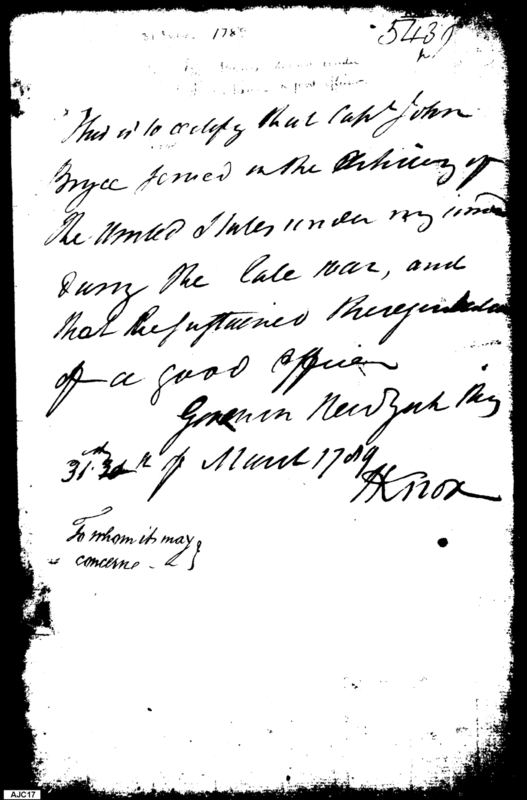 1789
5439
This is to certify that Capt John
Bryce served in the Artillery of
the United States under my
during the late war, and
that he sustained the reputation
of a good officer
Given in New York this
31st of March 1789
HKnox
To whom it may
concerne
AJC17